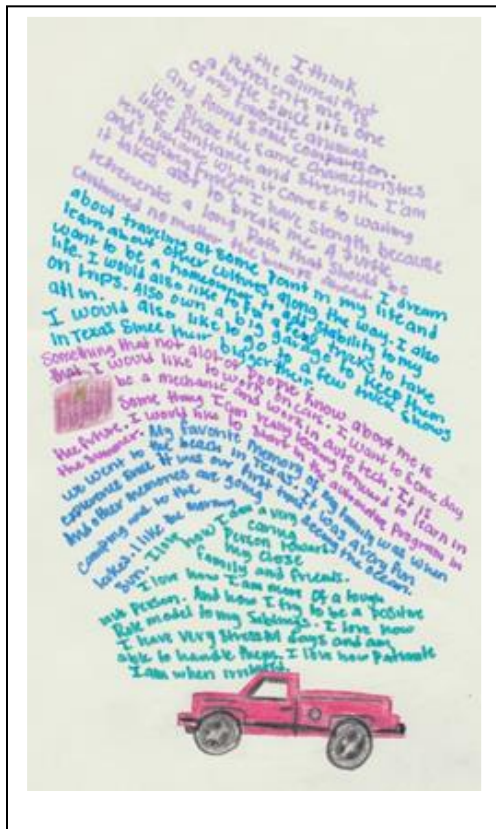 I think
the animal that
represents me is
a turtle since it is one
of my favorite animals
and found some comparison.
We share the same characteristics
like Pantiance and strength. I am
very Patiane when it comes to waiting
and talking finger. I have stength because
it takes alot to break me. A turtle
retrements a long Path that should be
continued no matter the bumps ahead.
I dream
about traveling at some Point in my life and
learn about other cultures along the way. I also
want to be a homeowner to add stability to my
life. I would also like to for a few trucks to take
on trips. Also own a big garage to keep them
all in.
I would also like to go to a few truck shows
in Texas Since their bigger their.
Something that not alot of People know about me is
that I would like to work on cars. I want to some day
be a mechanic and work in auto tech. It is
Some thing I am really looking forward to learn in
the future. I would like to start in the automotive program in
the summer.
My favorite memory of my family was when
we went to the beach in Texas. It was a very fun
experience since it was our first time seeing the ocean.
And other memories are going
camping and to the
lakes. I like the morning
sun.
I love
how I am a very
caring
Person towards
my close
family and friends.
I love how I am more of a tough
Person. And how I try to be a positive
Role model to my siblings. I love how
I have very stressful days and am
able to handle them. I love how Patianate
I am when irritated.